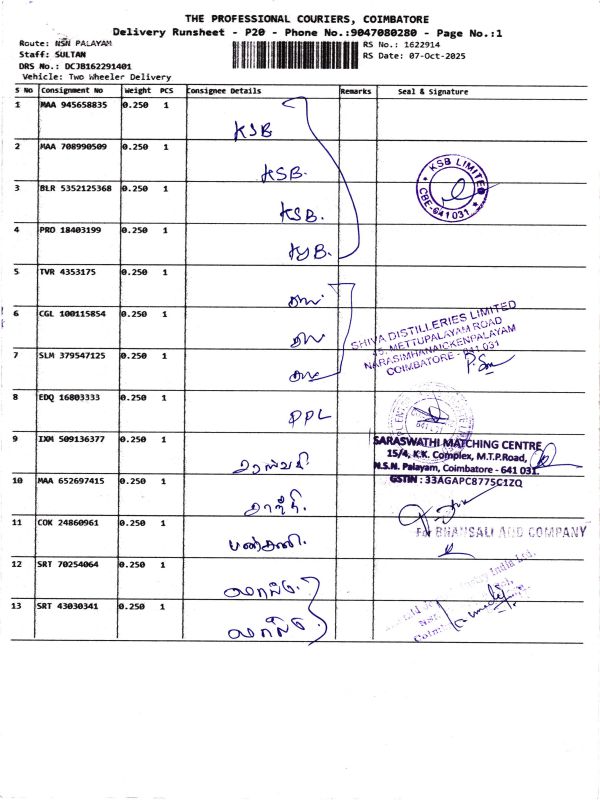 THE PROFESSIONAL COURIERS, COIMBATORE
Delivery Runsheet - P20 - Phone No.:9047080280 - Page No.:1
Route: NSN PALAYAM
RS No.: 1622914
Staff: SULTAN
RS Date: 07-Oct-2025
DRS No.: DCJB162291401
Vehicle: Two Wheeler Delivery
S No Consignment No Weight PCS Consignee Details Remarks Seal & Signature
1 MAA 945658835 0.250 1 KSB
2 MAA 708990509 0.250 1 KSB.
3 BLR 5352125368 0.250 1 KSB.
4 PRO 18403199 0.250 1 KSB.
KSB LIMITED
CBE-641 031
5 TVR 4353175 0.250 1
6 CGL 100115854 0.250 1
7 SLM 379547125 0.250 1
SHIVA DISTILLERIES LIMITED
METTUPALAYAM ROAD
NARASIMHANAICKENPALAYAM
COIMBATORE - 641 031
8 EDQ 16803333 0.250 1 PPL
9 IXM 509136377 0.250 1
SARASWATHI MATCHING CENTRE
15/4, K.K. Complex, M.T.P.Road,
N.S.N. Palayam, Coimbatore - 641 031.
GSTIN : 33AGAPC8775C1ZQ
10 MAA 652697415 0.250 1
11 COK 24860961 0.250 1
For BHANSALI AND COMPANY
12 SRT 70254064 0.250 1
13 SRT 43030341 0.250 1